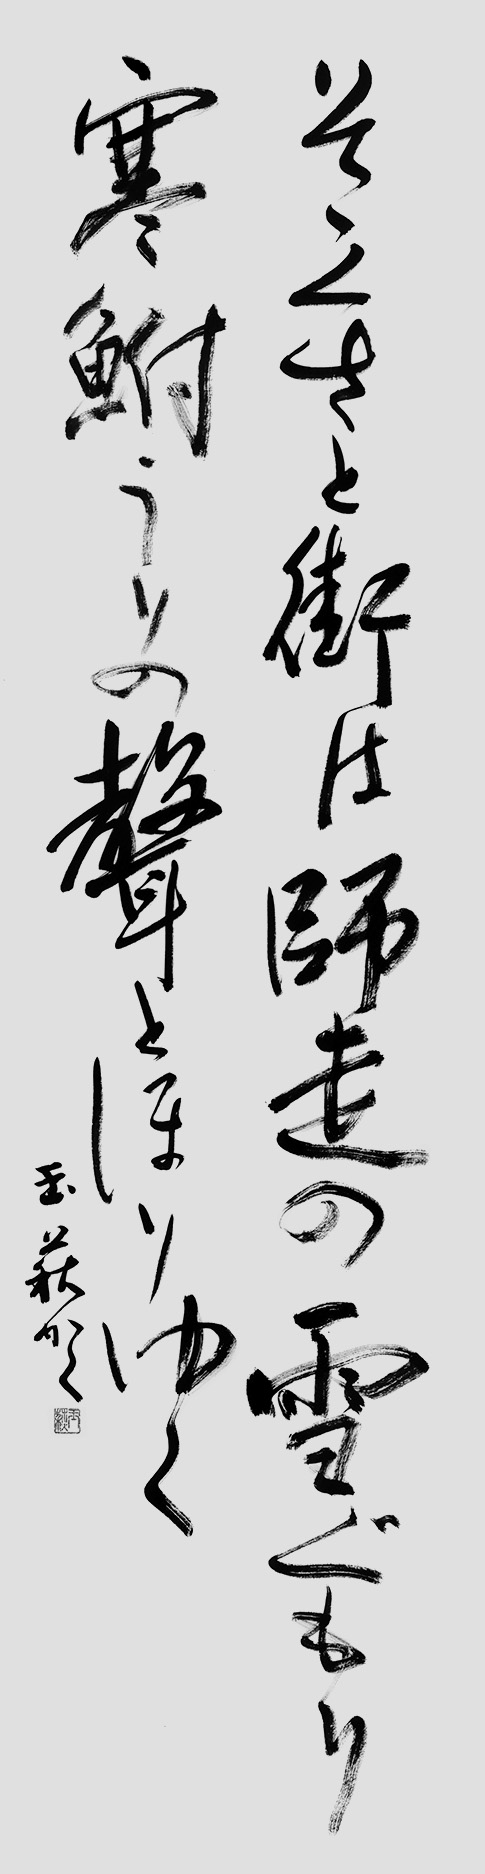 と街は師走の雪ぐもり
寒鮒うりの聲とほりゆく
玉萩かく